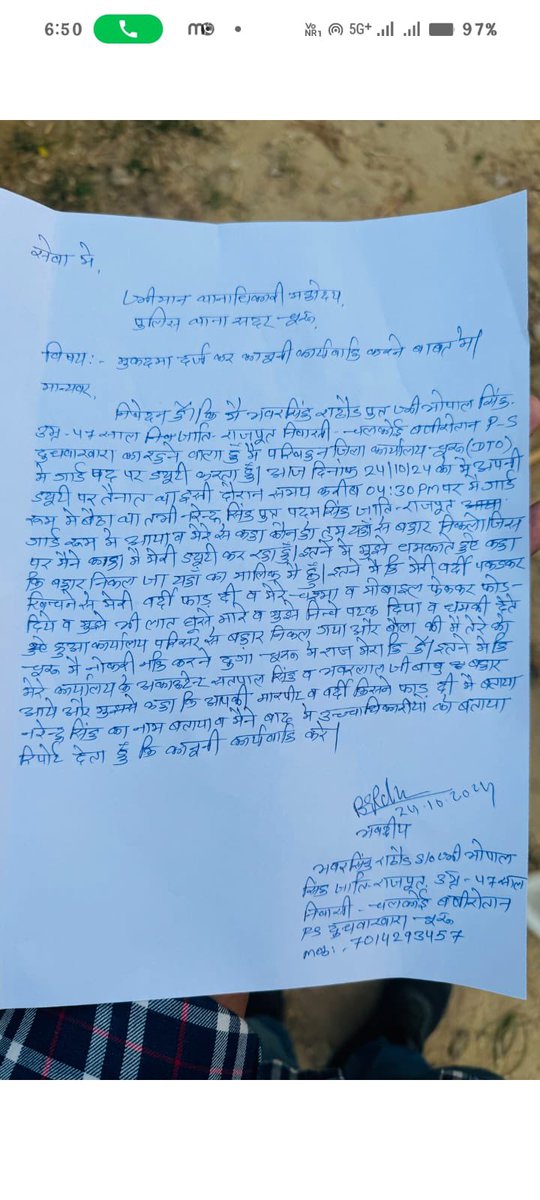 6:50
VoNR1 5G+ 97%
सेवा मे,
श्रीमान थानाधिकारी महोदय,
पुलिस थाना सदर चूरू
विषय:- मुकदमा दर्ज कर कानूनी कार्यवाहि करने बाबत मे।
मान्यवर,
निवेदन है। कि मै भवरसिंह राठौड पुत्र श्री गोपाल सिंह
उम्र-47 साल जाति-राजपूत निवासी चलकोई बणीरोतान P-S
दुधवाखारा का रहने वाला हुं मै परिवहन जिला कार्यालय चूरू (DTO)
मे गार्ड पद पर ड्यूटी करता हूँ। आज दिनांक 24/10/24 को मे अपनी
ड्यूटी पर तैनात था इसी दौरान समय करीब 04:30 PM पर मे गार्ड
रूम मे बैठा था तभी सिंह पुत्र पदम सिंह जाति-राजपूत
गार्ड रूम मे आया व मेरे से कहा कौन हो तुम यहाँ से बहार निकलो जिस
पर मैने कहा। मै मेरी ड्यूटी कर रहा हूँ। इतने मे मुझे धमकाते हुए कहा
कि बहार निकल जा यहा का मालिक मै हूँ। इतने मे हि मेरी वर्दी पकडकर
खिचने से मेरी वर्दी फाड दी व मेरे चश्मा व मोबाइल फेककर फोड
दिये व मुझे भी लात घूसे मारे व मुझे निच्चे पटक दिया व धमकी देते
हुआ कार्यालय परिसर से बहार निकल गया और बोला की मै तेरे को
चूरू मै नोकरी नहि करने दुगा चूरू मे राज मेरा हि है। इतने मे हि
मेरे कार्यालय के अकाउन्टेन्ट सतपाल सिंह व भवरलाल जी बाबू बहार
आये और मुझसे कहा कि आपकी मारपीट व वर्दी किसने फाड दी मै बताया
नरेन्द्र सिंह का नाम बताया व मैने बाद मे उच्चाधिकारीयो को बताया
रिपोर्ट देता हूँ कि कानूनी कार्यवाहि करे।
24.10.2024
भवदीय
भवरसिंह राठौड S/o श्री गोपाल
सिंह जाति-राजपूत, उम्र-47 साल
निवासी-चलकोई बणीरोतान
PS दुधवाखारा-चूरू
मो०:-7014293457